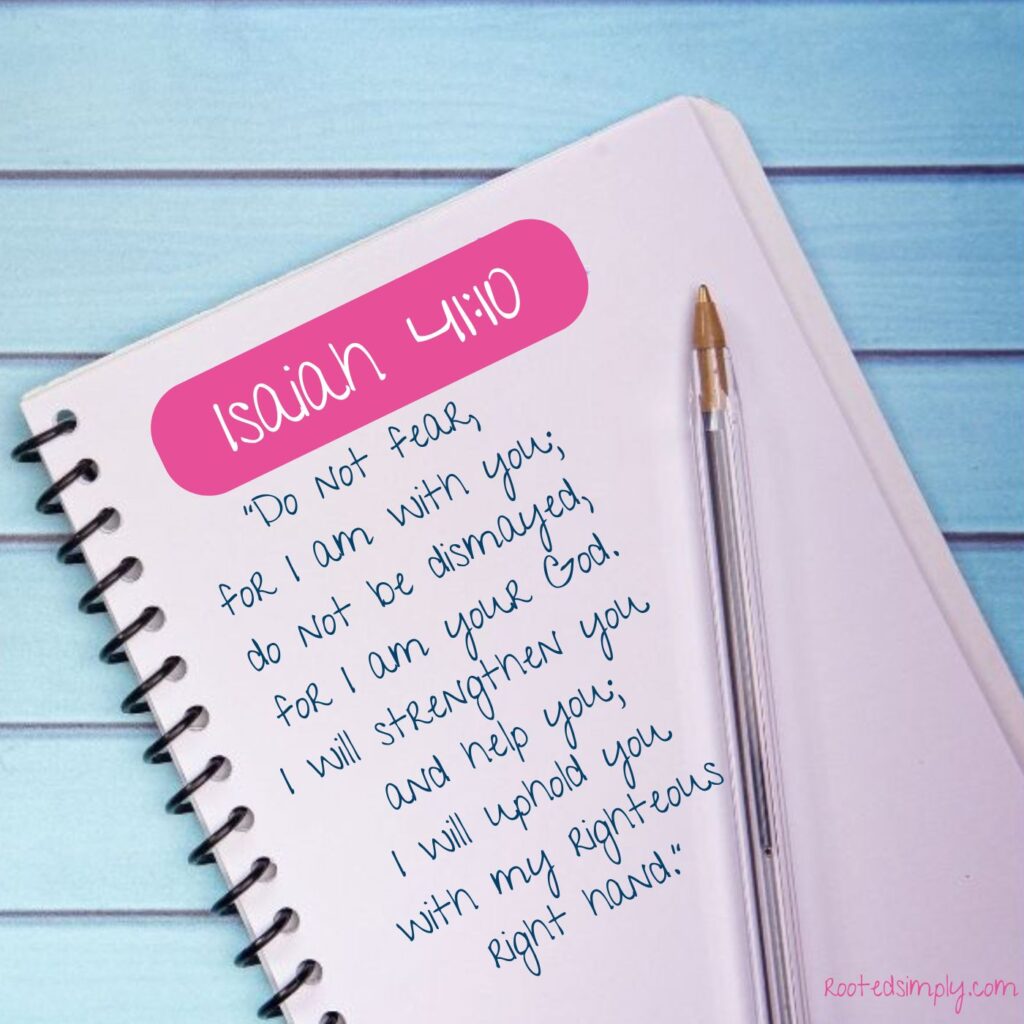 Isaiah 41:10
"Do not fear,
for I am with you;
do not be dismayed,
for I am your God.
I will strengthen you
and help you;
I will uphold you
with my righteous
right hand."
Rootedsimply.com